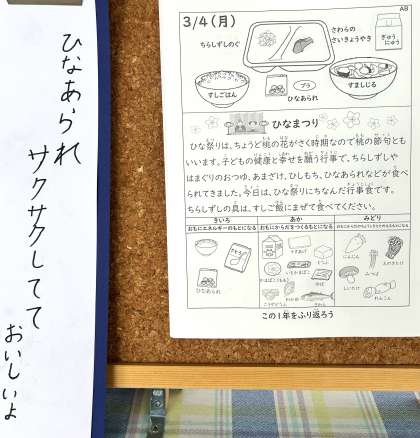 ひなあられ
サクサクしてて
おいしいよ
AB
3/4(月)
ちらしずしのぐ
さわらの
さいきょうやき
ぎゅう
にゅう
すしごはん
プラ
ひなあられ
すましじる
ひなまつり
ひな祭りは、ちょうど桃の花がさく時期なので桃の節句とも
いいます。子どもの健康と幸せを願う行事で、ちらしずしや
はまぐりのおつゆ、あまざけ、ひしもち、ひなあられなどが食べ
られてきました。今日は、ひな祭りにちなんだ行事食です。
ちらしずしの具は、すし飯にまぜて食べてください。
きいろ
あか
みどり
おもにエネルギーのもとになる
おもにからだをつくるもとになる
ひなあられ
にんじん
えのきたけ
みつば
しいたけ
れんこん
さわら
この1年をふり返ろう